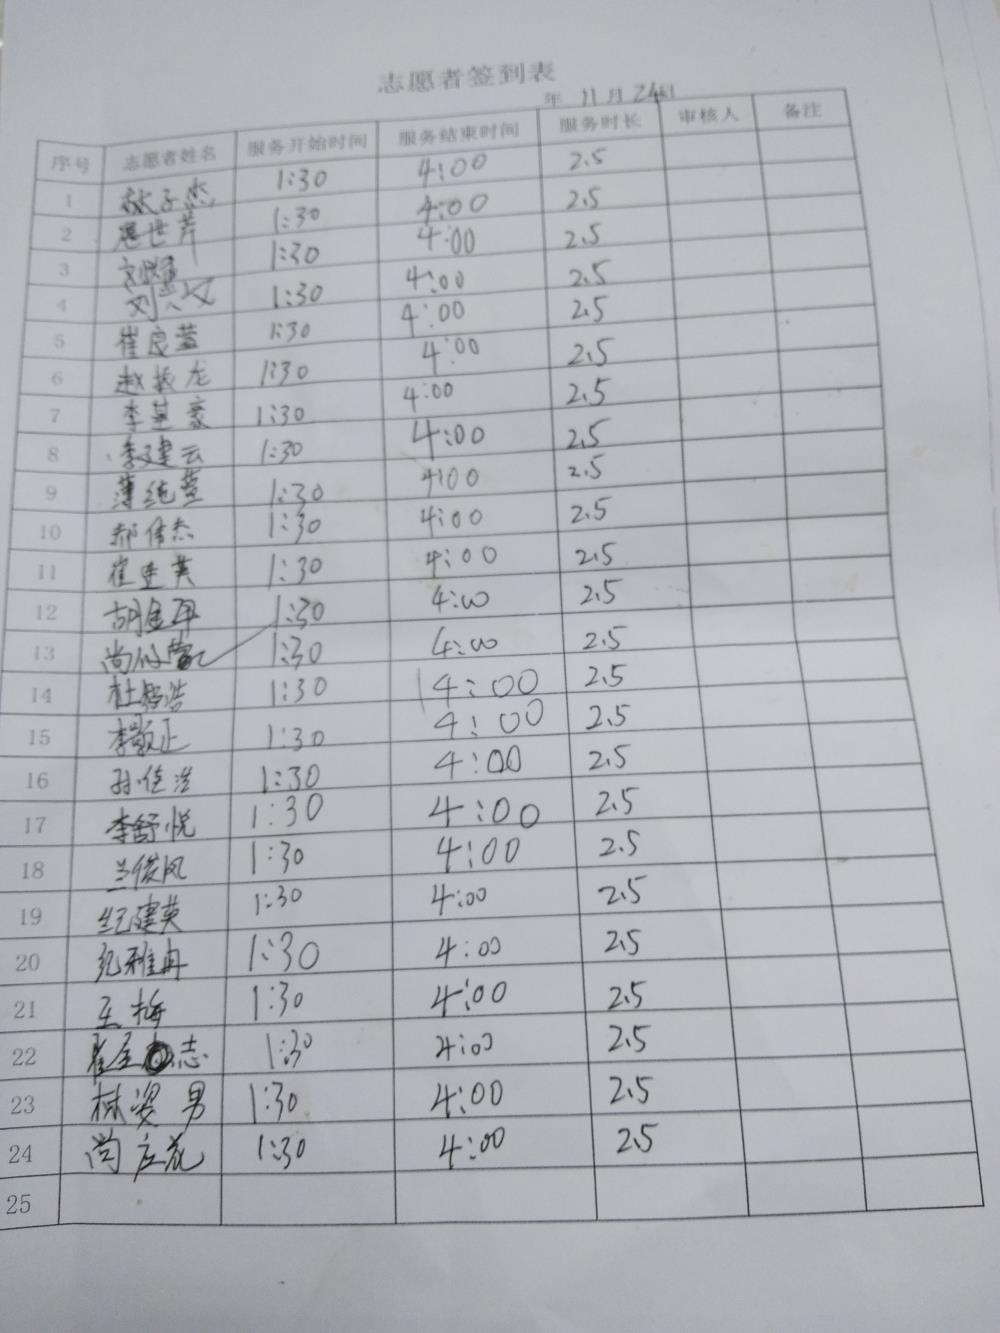 志愿者签到表
年 11月24日
序号 志愿者姓名 服务开始时间 服务结束时间 服务时长 审核人 备注
1 子杰 1:30 4:00 2.5
2 世芹 1:30 4:00 2.5
3 1:30 4:00 2.5
4 刘 1:30 4:00 2.5
5 崔良萱 1:30 4:00 2.5
6 赵振龙 1:30 4:00 2.5
7 李基豪 1:30 4:00 2.5
8 李建云 1:30 4:00 2.5
9 薄纯萱 1:30 4:00 2.5
10 郝伟杰 1:30 4:00 2.5
11 崔英 1:30 4:00 2.5
12 胡金 1:30 4:00 2.5
13 尚 1:30 4:00 2.5
14 杜智浩 1:30 4:00 2.5
15 李敬正 1:30 4:00 2.5
16 孙佳浩 1:30 4:00 2.5
17 李舒悦 1:30 4:00 2.5
18 兰俊风 1:30 4:00 2.5
19 纪建英 1:30 4:00 2.5
20 纪雅冉 1:30 4:00 2.5
21 王梅 1:30 4:00 2.5
22 崔全志 1:30 4:00 2.5
23 林姿男 1:30 4:00 2.5
24 尚庄花 1:30 4:00 2.5
25